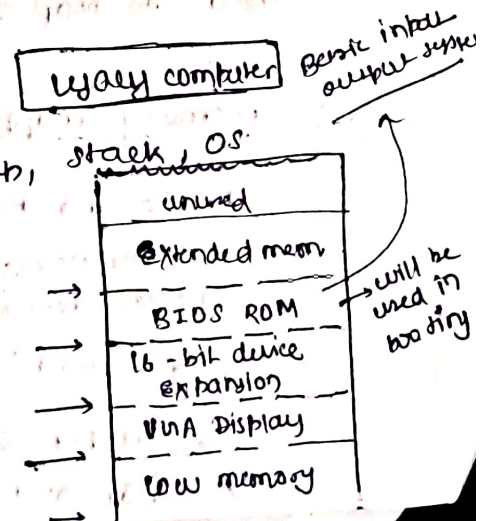 legacy computer
Basic input
output system
stack, OS
unused
extended mem
BIOS ROM
will be
used in
booting
16-bit device
expansion
VGA Display
low memory